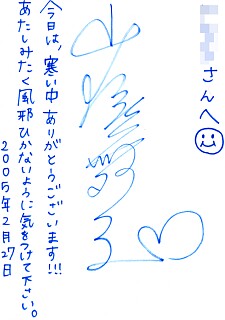 さんへ
今日は、寒い中ありがとうございます!!!
あたしみたく風邪ひかないように気をつけて下さい。
2005年2月27日